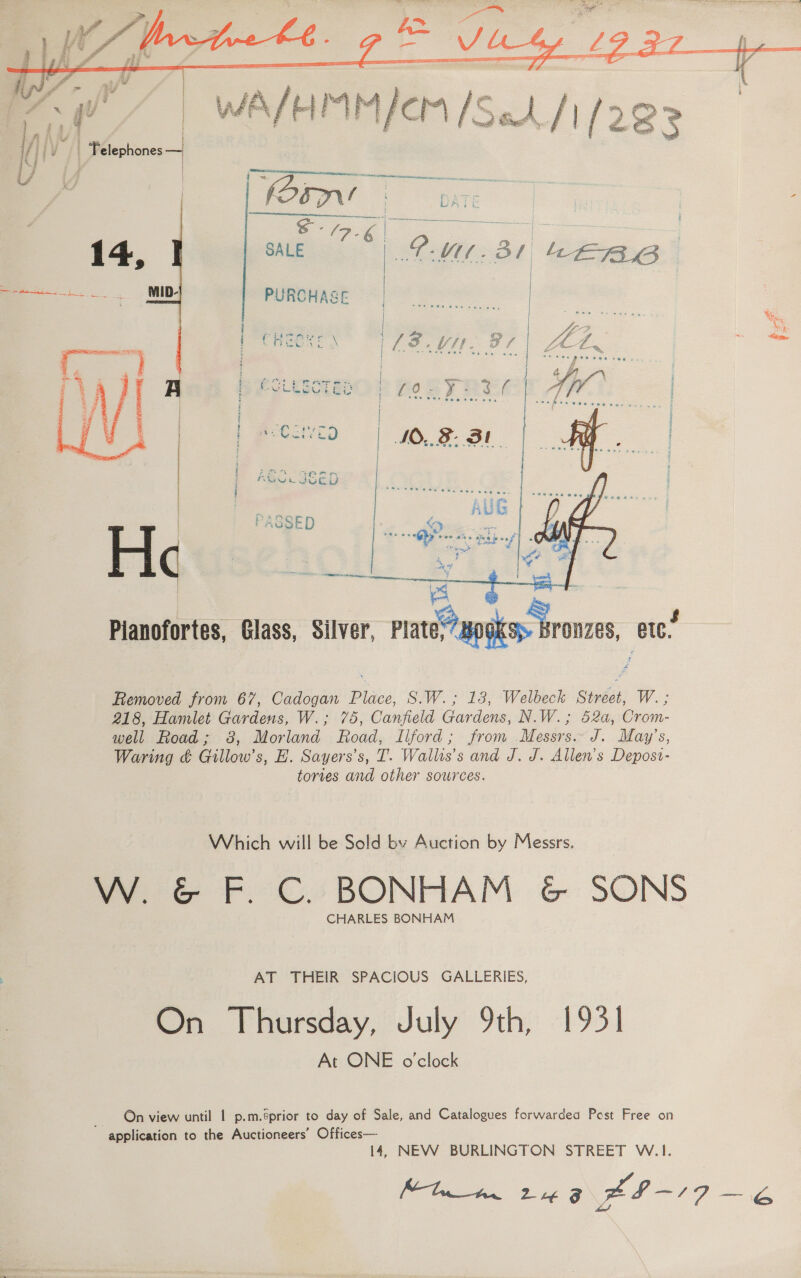 9th July 1931
WA/HMM/CM/Sal/1/283
Telephones —
DATE INITIALS
£8-17-6
14,
SALE 9.VII.31 WEBB
MID-
PURCHASE
CHECKED 13.VII.31
COLLECTED 10.8.31
RECEIVED 10.8.31
AUG
PASSED
Ho
Pianofortes, Glass, Silver, Plate, Books, Bronzes, etc.
Removed from 67, Cadogan Place, S.W.; 13, Welbeck Street, W.;
218, Hamlet Gardens, W.; 75, Canfield Gardens, N.W.; 52a, Crom-
well Road; 3, Morland Road, Ilford; from Messrs. J. May's,
Waring & Gillow's, E. Sayers's, T. Wallis's and J. J. Allen's Deposi-
tories and other sources.
Which will be Sold by Auction by Messrs.
W. & F. C. BONHAM & SONS
CHARLES BONHAM
AT THEIR SPACIOUS GALLERIES,
On Thursday, July 9th, 1931
At ONE o'clock
On view until 1 p.m. prior to day of Sale, and Catalogues forwarded Post Free on
application to the Auctioneers' Offices—
14, NEW BURLINGTON STREET W.1.
243 £8-17-6